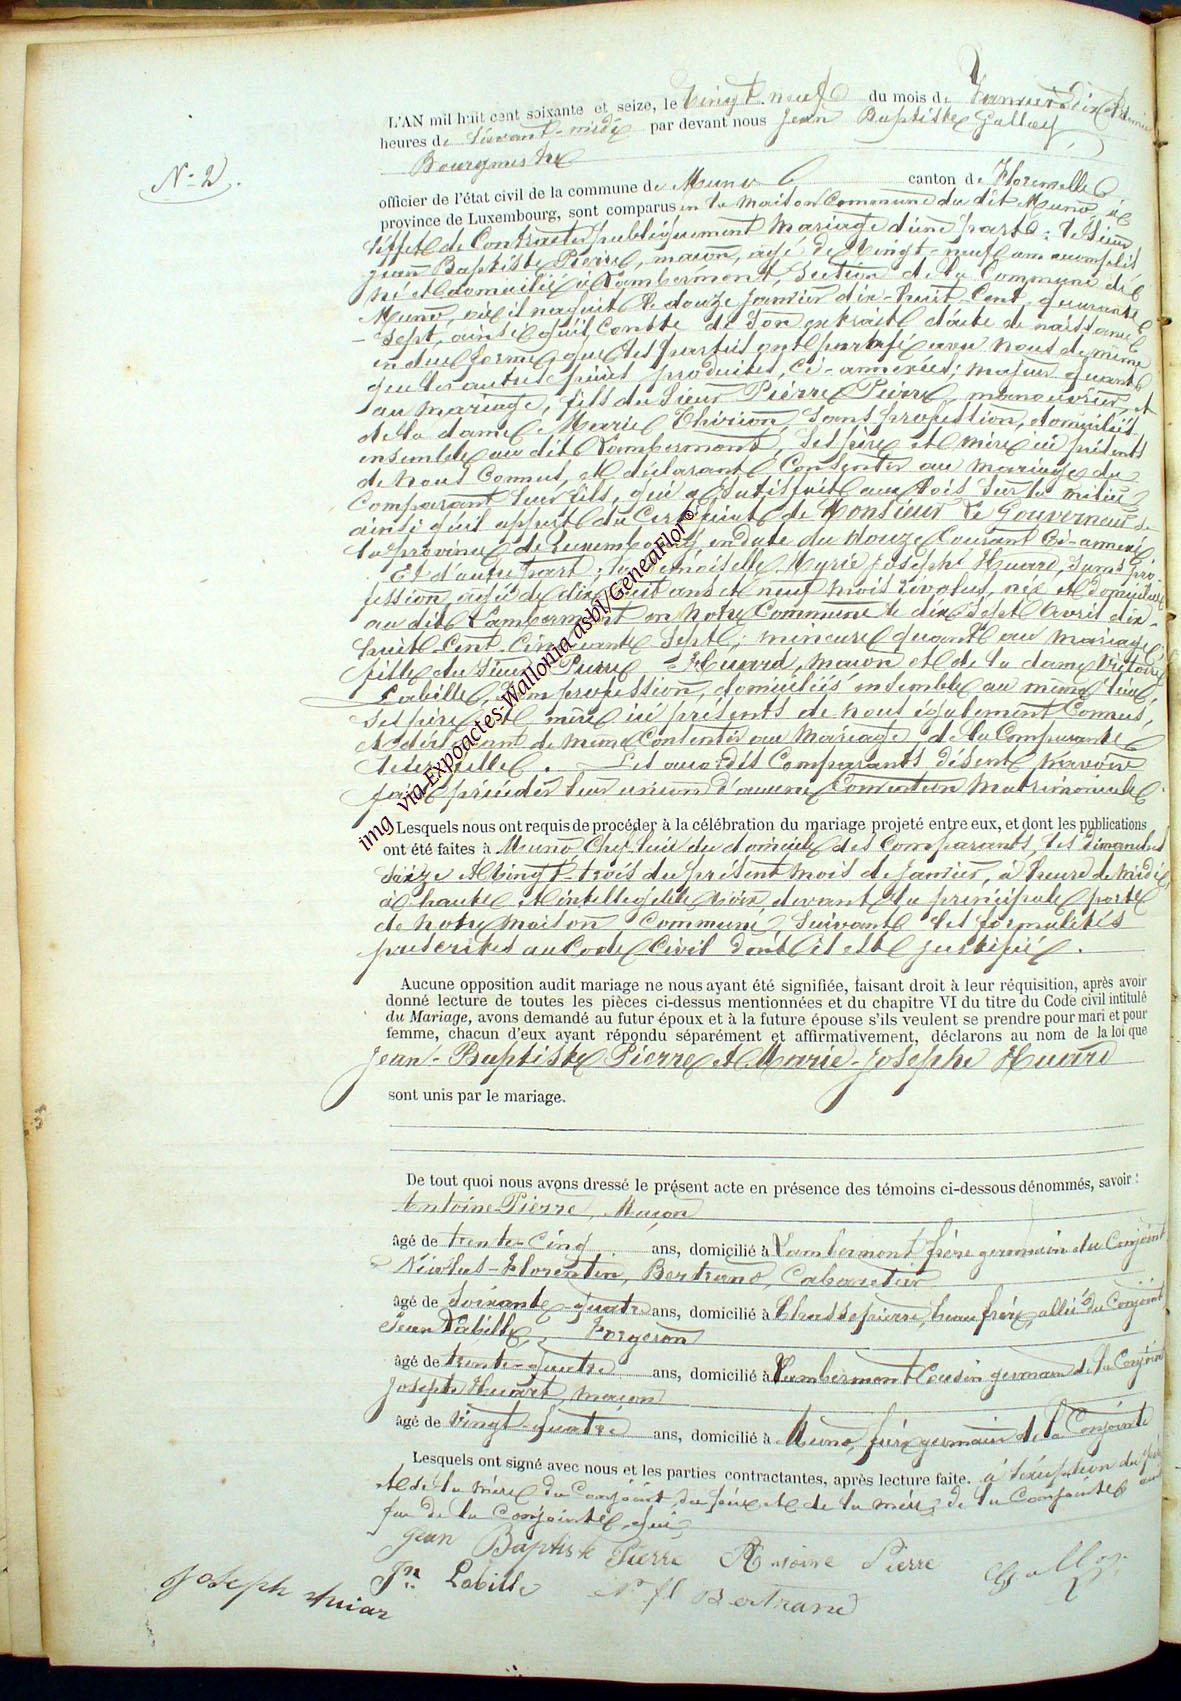 N° 2.
L'AN mil huit cent soixante et seize, le vingt-neuf du mois de Janvier dix
heures de avant-midi par devant nous Jean Baptiste Galloy
Bourgmestre
officier de l'état civil de la commune de Muno canton de Florenville
province de Luxembourg, sont comparus en la maison Commune du dit Muno à
l'effet de Contracter publiquement Mariage d'une part : le Sieur
Jean Baptiste Pierre, maçon, agé de Vingt-neuf ans accomplis
né et domicilié à Lambermont, Section de la Commune de
Muno, où il naquit le douze Janvier dix-huit-Cent quarante
-Sept, ainsi qu'il Conste de son extrait d'acte de naissance
en due forme, que les parties ont paraphé avec nous de même
que les autres pièces produites, Ci-annexées; majeur quant
au Mariage, fils du Sieur Pierre Pierre, manouvrier, et
de la dame Marie Thirion, Sans profession, domiciliés
ensemble au dit Lambermont, Ses père et mère ici présents
de nous Connus, et déclarant Consentir au Mariage du
Comparant leur fils, qui a Satisfait aux lois Sur la milice
ainsi qu'il appert du Certificat de Monsieur Le Gouverneur de
la province de Luxembourg, en date du douze Courant Ci-annexé
Et d'autre part; la demoiselle Marie Josephe Huard, Sans pro-
fession, agée de dix-huit ans et neuf mois révolus, née et domiciliée
au dit Lambermont en notre Commune le dix Sept Avril dix-
huit-Cent-Cinquante-Sept; mineure quant au mariage,
fille du Sieur Pierre Huard, maçon et de la dame Victoire
Labille, Sans profession, domiciliés ensemble au même lieu
Ses père et mère ici présents de nous également Connus,
et déclarant de même Consentir au Mariage de la Comparante
leur fille. Les susdits Comparants disent n'avoir
fait précéder leur union d'aucune Convention Matrimoniale.
Lesquels nous ont requis de procéder à la célébration du mariage projeté entre eux, et dont les publications
ont été faites à Muno, Chef-lieu du domicile des Comparants, les dimanches
Seize et Vingt-trois du présent mois de Janvier, à l'heure de Midi
à haute et intelligible voix devant la principale porte
de notre Maison Commune, Suivant les formalités
prescrites au Code Civil dont il est justifié.
Aucune opposition audit mariage ne nous ayant été signifiée, faisant droit à leur réquisition, après avoir
donné lecture de toutes les pièces ci-dessus mentionnées et du chapitre VI du titre du Code civil intitulé
du Mariage, avons demandé au futur époux et à la future épouse s'ils veulent se prendre pour mari et pour
femme, chacun d'eux ayant répondu séparément et affirmativement, déclarons au nom de la loi que
Jean-Baptiste Pierre et Marie-Josephe Huard
sont unis par le mariage.
De tout quoi nous avons dressé le présent acte en présence des témoins ci-dessous dénommés, savoir :
Antoine Pierre, Maçon
âgé de trente-Cinq ans, domicilié à Lambermont frère germain du Conjoint
Nicolas-Florentin, Bertrand, Cabaretier
âgé de Soixante-quatre ans, domicilié à Chassepierre, beau frère, allié du Conjoint
Jean Labille, Forgeron
âgé de trente-quatre ans, domicilié à Lambermont Cousin germain de la Conjointe
Joseph Huart, maçon
âgé de Vingt-quatre ans, domicilié à Muno, frère germain de la Conjointe
Lesquels ont signé avec nous et les parties contractantes, après lecture faite. à l'exception du père
et de la mère du Conjoint, du père et de la mère de la Conjointe
de la Conjointe, qui
Jean Baptiste Pierre Antoine Pierre Galloy
Jn Labille N. fl Bertrand
Joseph Huar
img via Expoactes-Wallonia asbl/GeneaFlor©